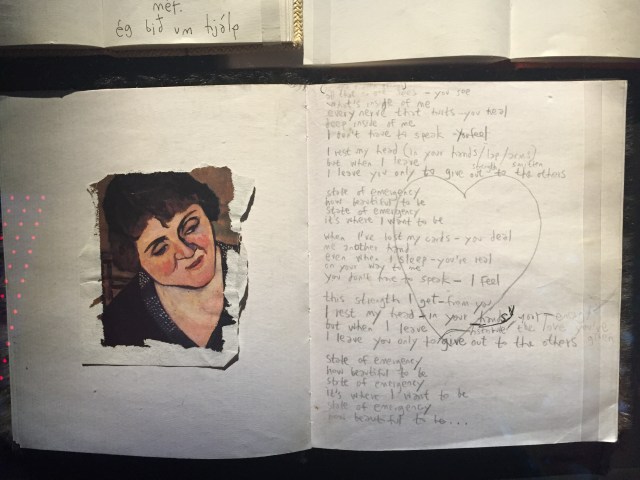 mér.
ég bið um hjálp
you see
what's inside of me
every nerve that hurts - you heal
deep inside of me
I don't have to speak - you feel
I rest my head (in your hands/lap/arms)
but when I leave
I leave you only to give out to the others
state of emergency
how beautiful to be
state of emergency
it's where I want to be
when I've lost my cards - you deal
me another hand
even when I sleep - you're real
on your way to me
you don't have to speak - I feel
this strength I get - from you
I rest my head - in your hands
but when I leave the love
I leave you only to give out to the others
state of emergency
how beautiful to be
state of emergency
it's where I want to be
state of emergency
how beautiful to be...